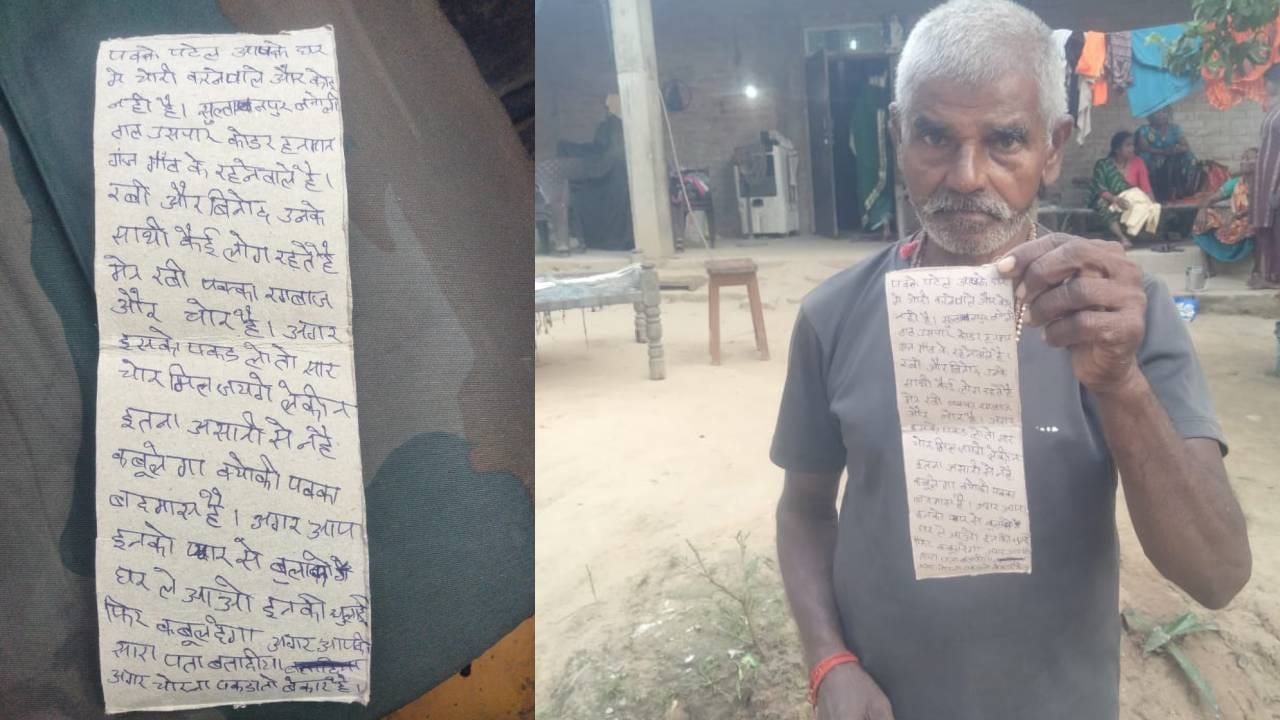 पक्के पटेल आपके घर
मे चोरी करनेवाले और कोई
नही है। सुल्तानपुर
उसपार कोडर
गंज गाँव के रहनेवाले है।
रबी और बिनोद उनके
साथी कैई लोग रहतेहै
मेर रबी पक्का
और चोर है। अगर
इसको पकड लोतो सार
चोर मिल जायगे लेकीन
इतना असानी से नहै
कबूलेगा क्योकी पक्का
बादमास है। अगर आप
इनको प्यार से बुलाके
घर ले आओ इनको
फिर कबूलदेगा अगर आपको
सारा पता बतादीया
अगर चोरना पकडातो बेकार है।